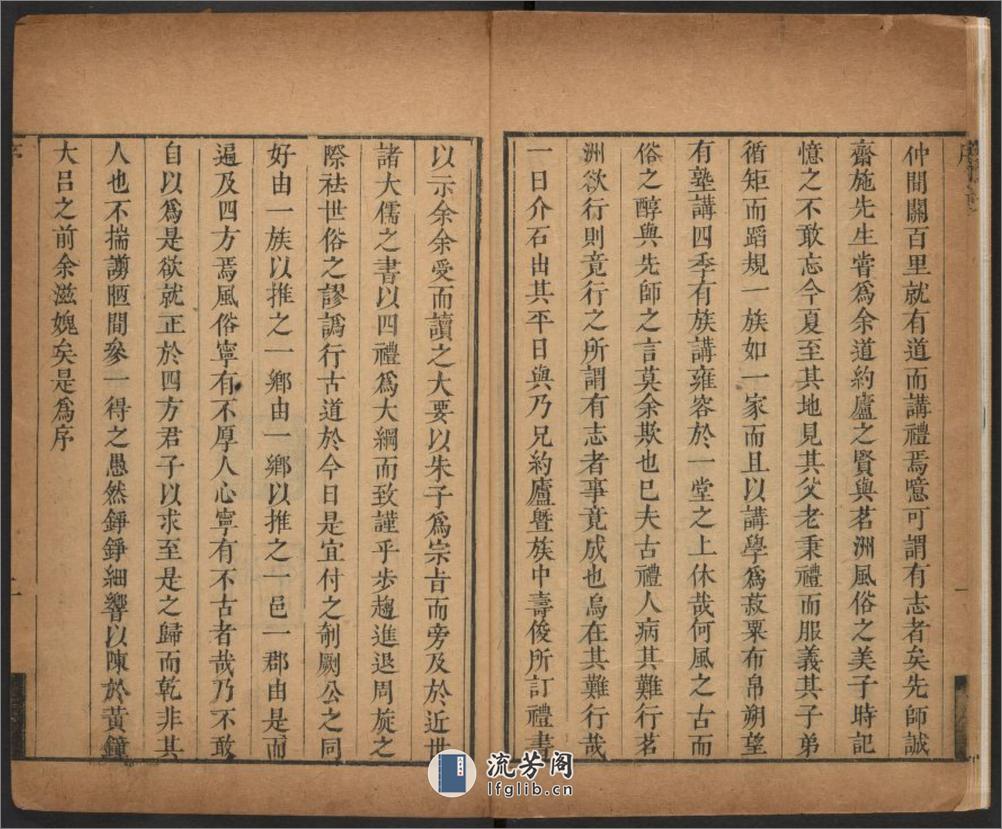 仲間關百里就有道而講禮焉噫可謂有志者矣先師誠
齋施先生嘗爲余道約廬之賢與茗洲風俗之美子時記
憶之不敢忘今夏至其地見其父老秉禮而服義其子弟
循矩而蹈規一族如一家而且以講學爲菽粟布帛朔望
有塾講四季有族講雍容於一堂之上休哉何風之古而
俗之醇與先師之言莫余欺也巳夫古禮人病其難行茗
洲欲行則竟行之所謂有志者事竟成也烏在其難行哉
一日介石出其平日與乃兄約廬曁族中壽俊所訂禮書
以示余余受而讀之大要以朱子爲宗㫖而旁及於近世
諸大儒之書以四禮爲大綱而致謹乎步趨進退周旋之
際祛世俗之謬譌行古道於今日是宜付之剞劂公之同
好由一族以推之一鄉由一鄉以推之一邑一郡由是而
遍及四方焉風俗寧有不厚人心寧有不古者哉乃不敢
自以爲是欲就正於四方君子以求至是之歸而乾非其
人也不揣謭陋間參一得之愚然錚錚細響以陳於黃鐘
大呂之前余滋媿矣是爲序
序
一
流芳阁
lfglib.cn